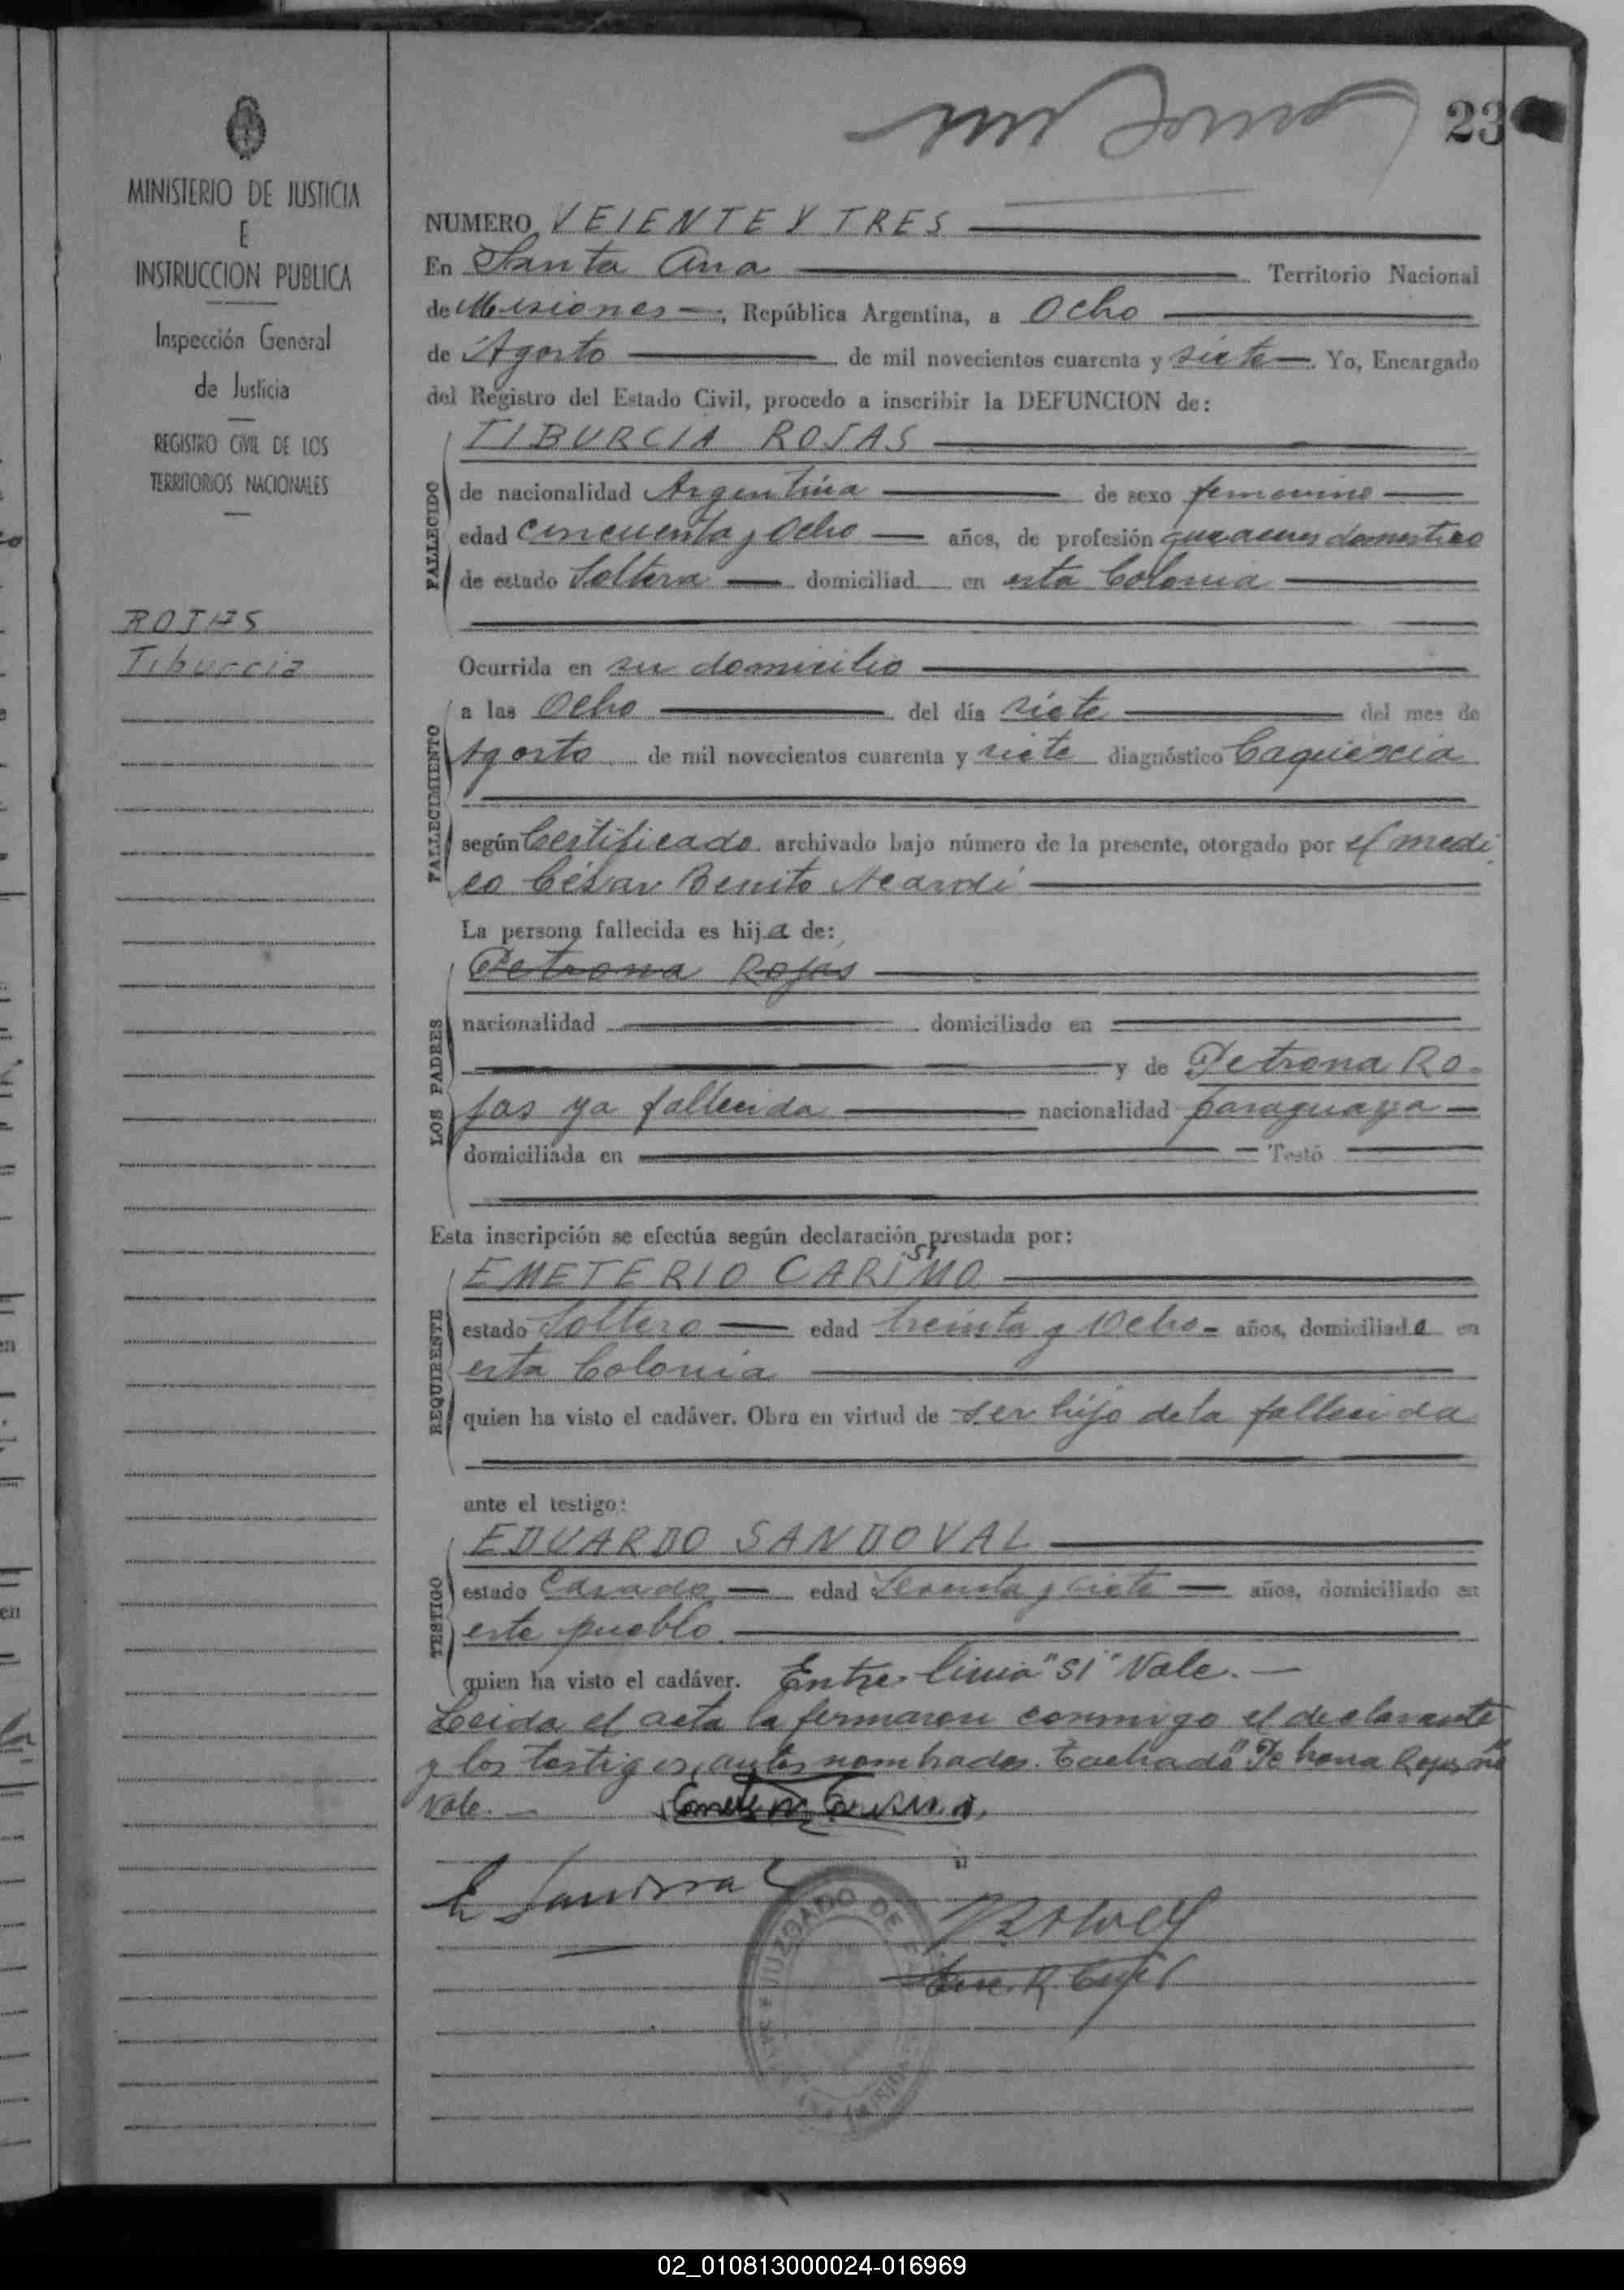 23
MINISTERIO DE JUSTICIA
E
INSTRUCCION PUBLICA
Inspección General
de Justicia
REGISTRO CIVIL DE LOS
TERRITORIOS NACIONALES
ROJAS
Tiburcia
NUMERO VEIENTE Y TRES
En Santa Ana Territorio Nacional
de Misiones, República Argentina, a Ocho
de Agosto de mil novecientos cuarenta y siete. Yo, Encargado
del Registro del Estado Civil, procedo a inscribir la DEFUNCION de:
FALLECIDO
TIBURCIA ROJAS
de nacionalidad Argentina de sexo femenino
edad cincuenta y Ocho años, de profesión domestico
de estado Soltera domiciliad en esta Colonia
Ocurrida en su domicilio
FALLECIMIENTO
a las Ocho del día siete del mes de
Agosto de mil novecientos cuarenta y siete diagnóstico Caquiexia
según Certificado archivado bajo número de la presente, otorgado por el medi
co César Benito
La persona fallecida es hija de:
LOS PADRES
Petrona Rojas
nacionalidad domiciliado en
y de Petrona Ro-
jas ya fallecida nacionalidad paraguaya
domiciliada en Testó
Esta inscripción se efectúa según declaración prestada por:
REQUIRENTE
SI
EMETERIO CARIMO
estado Soltero edad treinta y Ocho años, domiciliado en
esta Colonia
quien ha visto el cadáver. Obra en virtud de ser hijo de la fallecida
ante el testigo:
TESTIGO
EDUARDO SANDOVAL
estado Casado edad años, domiciliado en
este pueblo
quien ha visto el cadáver. Entre linia "SI" Vale.
Leida el acta la fermaron conmigo el declarante
y los testigos, antes nombrados. Tachado "Petrona Rojas" no
vale.
E Sandoval
JUZGADO DE
02_010813000024-016969